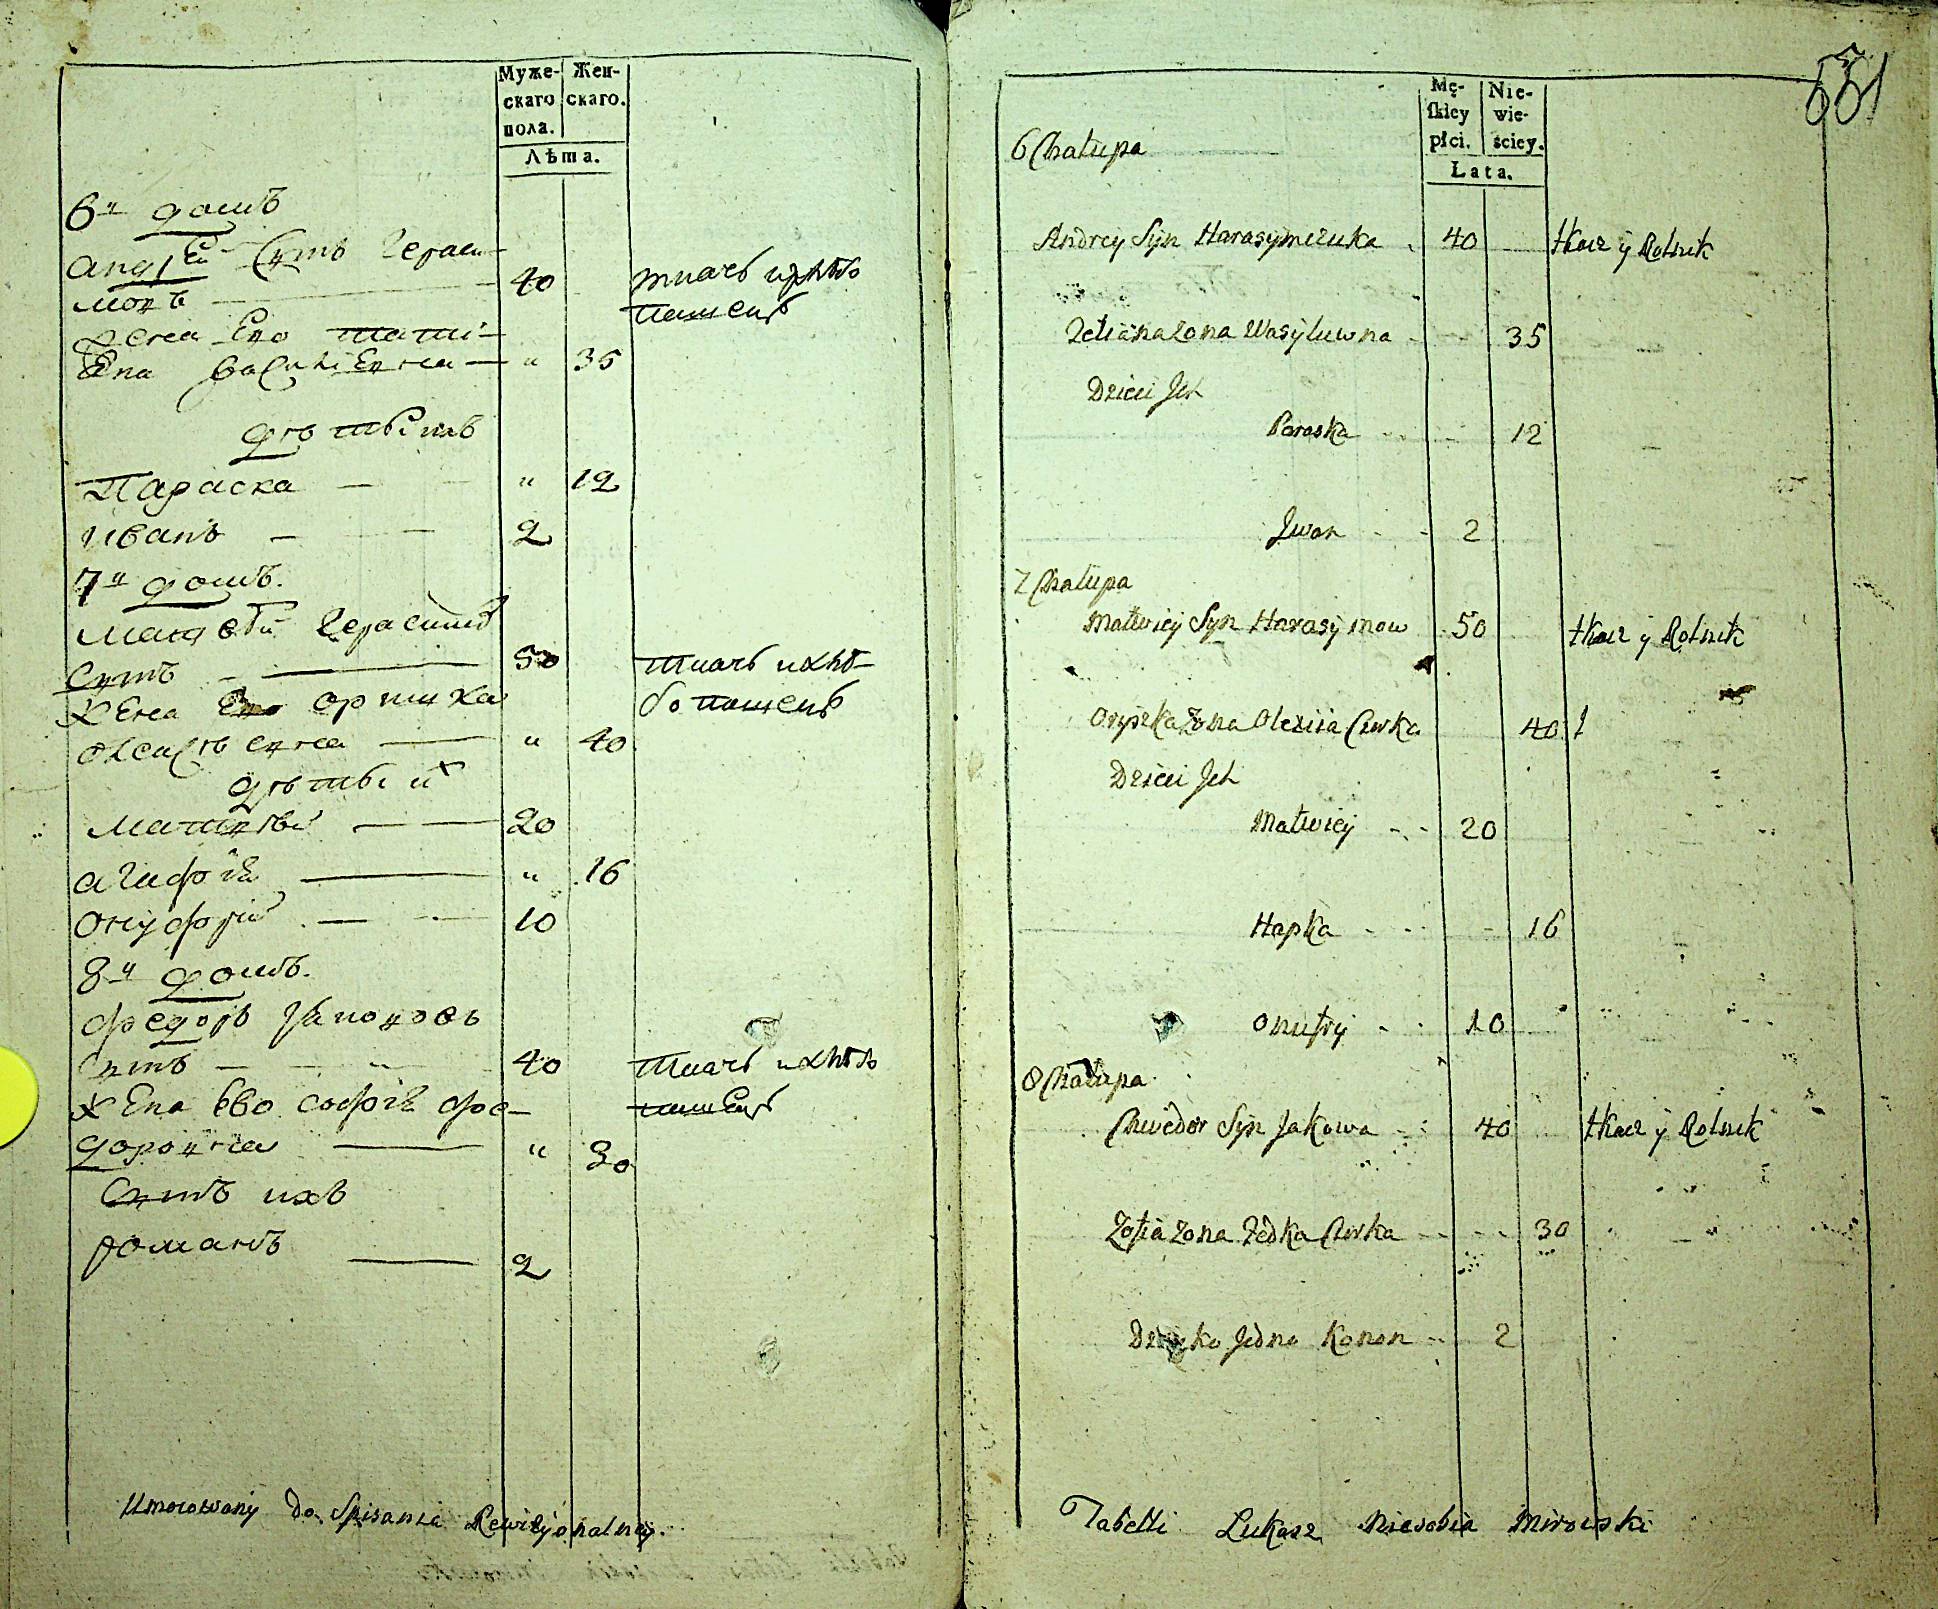 Муже-
скаго
пола.
Жен-
скаго.
Лѣта.
6й домъ
андрей Сынъ Гераси-
мовъ 40 ткачь и хлѣбо
пашецъ
жена Его тати-
Ена Васильевна " 35
дѣти ихъ
Параска " 12
иванъ 2
7й домъ.
матвѣй Герасимовъ
Сынъ 50 ткачь и хлѣ-
бопашецъ
жена Его оришка
олексѣевна " 40
дѣти их
матвѣй 20
агафія " 16
онуфрій 10
8й домъ.
федоръ Якововъ
Сынъ 40 ткачь и хлѣбо
пашецъ
жена Ево софія фе-
доровна " 30
Сынъ ихъ
романъ 2
Umocowany do Spisania Rewizyonalney.
551
Mę-
skiey
płci.
Nie-
wie-
ściey.
Lata.
6 Chałupa
Andrey Syn Harasymczuka 40 tkacz y Rolnik
Teticina Zona Wasyluwna 35
Dzieci Jch
Paraska 12
Jwan 2
7 Chałupa
Matwiey Syn Harasymow 50 tkacz y Rolnik
Oryszka Zona Olexiia Curka 40
Dzieci Jch
Matwiey 20
Hapka 16
Onufry 10
8 Chałupa
Chwedor Syn Jakowa 40 tkacz y Rolnik
Zofia Zona Fedka Curka 30
Dziecko Jedno Konon 2
Tabelli Lukasz Mirowski